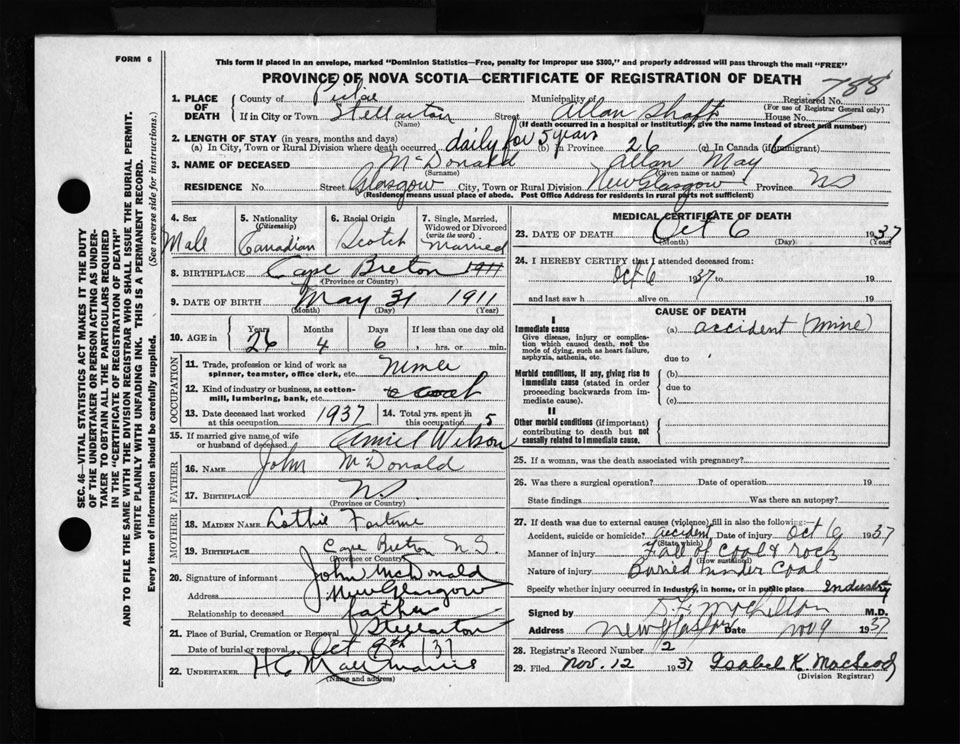 FORM 6
This form if placed in an envelope, marked "Dominion Statistics—Free, penalty for improper use $300," and properly addressed will pass through the mail "FREE"
PROVINCE OF NOVA SCOTIA—CERTIFICATE OF REGISTRATION OF DEATH
788
Registered No.
(For use of Registrar General only)
1. PLACE OF DEATH County of Pictou Municipality of
If in City or Town Stellarton Street Allan Shaft House No.
(Name) (If death occurred in a hospital or institution, give the name instead of street and number)
2. LENGTH OF STAY (in years, months and days)
(a) In City, Town or Rural Division where death occurred daily for 5 years (b) in Province 26 (c) in Canada (if immigrant)
3. NAME OF DECEASED McDonald Allan May
(Surname) (Given name or names)
RESIDENCE No. Street Glasgow City, Town or Rural Division New Glasgow Province NS
(Residency means usual place of abode. Post Office Address for residents in rural parts not sufficient)
4. Sex Male
5. Nationality (Citizenship) Canadian
6. Racial Origin Scotch
7. Single, Married, Widowed or Divorced (write the word) Married
8. BIRTHPLACE Cape Breton 1911
(Province or Country)
9. DATE OF BIRTH May 31 1911
(Month) (Day) (Year)
10. AGE in Years 26 Months 4 Days 6 If less than one day old hrs. or min.
OCCUPATION
11. Trade, profession or kind of work as spinner, teamster, office clerk, etc. Miner
12. Kind of industry or business, as cotton-mill, lumbering, bank, etc. coal
13. Date deceased last worked at this occupation 1937
14. Total yrs. spent in 5
15. If married give name of wife or husband of deceased Wilson
FATHER
16. NAME John McDonald
17. BIRTHPLACE N.S.
(Province or Country)
MOTHER
18. MAIDEN NAME Fortune
19. BIRTHPLACE Cape Breton N.S.
(Province or Country)
20. Signature of informant John McDonald
Address New Glasgow
Relationship to deceased father
21. Place of Burial, Cremation or Removal Stellarton
Date of burial or removal Oct 9th 1937
22. UNDERTAKER
(Name and address)
MEDICAL CERTIFICATE OF DEATH
23. DATE OF DEATH Oct 6 1937
(Month) (Day) (Year)
24. I HEREBY CERTIFY that I attended deceased from:
Oct 6 1937 to 19
and last saw h alive on 19
CAUSE OF DEATH
I
Immediate cause
Give disease, injury or complication which caused death, not the mode of dying, such as heart failure, asphyxia, asthenia, etc.
(a) accident (mine)
due to
Morbid conditions, if any, giving rise to immediate cause (stated in order proceeding backwards from immediate cause).
(b)
due to
(c)
II
Other morbid conditions (if important) contributing to death but not causally related to immediate cause.
25. If a woman, was the death associated with pregnancy?
26. Was there a surgical operation? Date of operation 19
State findings Was there an autopsy?
27. If death was due to external causes (violence), fill in also the following:—
Accident, suicide or homicide? accident Date of injury Oct 6 1937
(State which)
Manner of injury Fall of coal & rock
(How sustained)
Nature of injury Buried under coal
Specify whether injury occurred in industry, in home, or in public place Industry
Signed by M.D.
Address New Glasgow Date Nov 9 1937
28. Registrar's Record Number 2
29. Filed Nov. 12 1937 Isabel K MacLeod
(Division Registrar)
SEC. 46—VITAL STATISTICS ACT MAKES IT THE DUTY
OF THE UNDERTAKER OR PERSON ACTING AS UNDER-
TAKER TO OBTAIN ALL THE PARTICULARS REQUIRED
IN THE "CERTIFICATE OF REGISTRATION OF DEATH"
AND TO FILE THE SAME WITH THE DIVISION REGISTRAR WHO SHALL ISSUE THE BURIAL PERMIT.
WRITE PLAINLY WITH UNFADING INK. THIS IS A PERMANENT RECORD.
Every item of information should be carefully supplied. (See reverse side for instructions.)